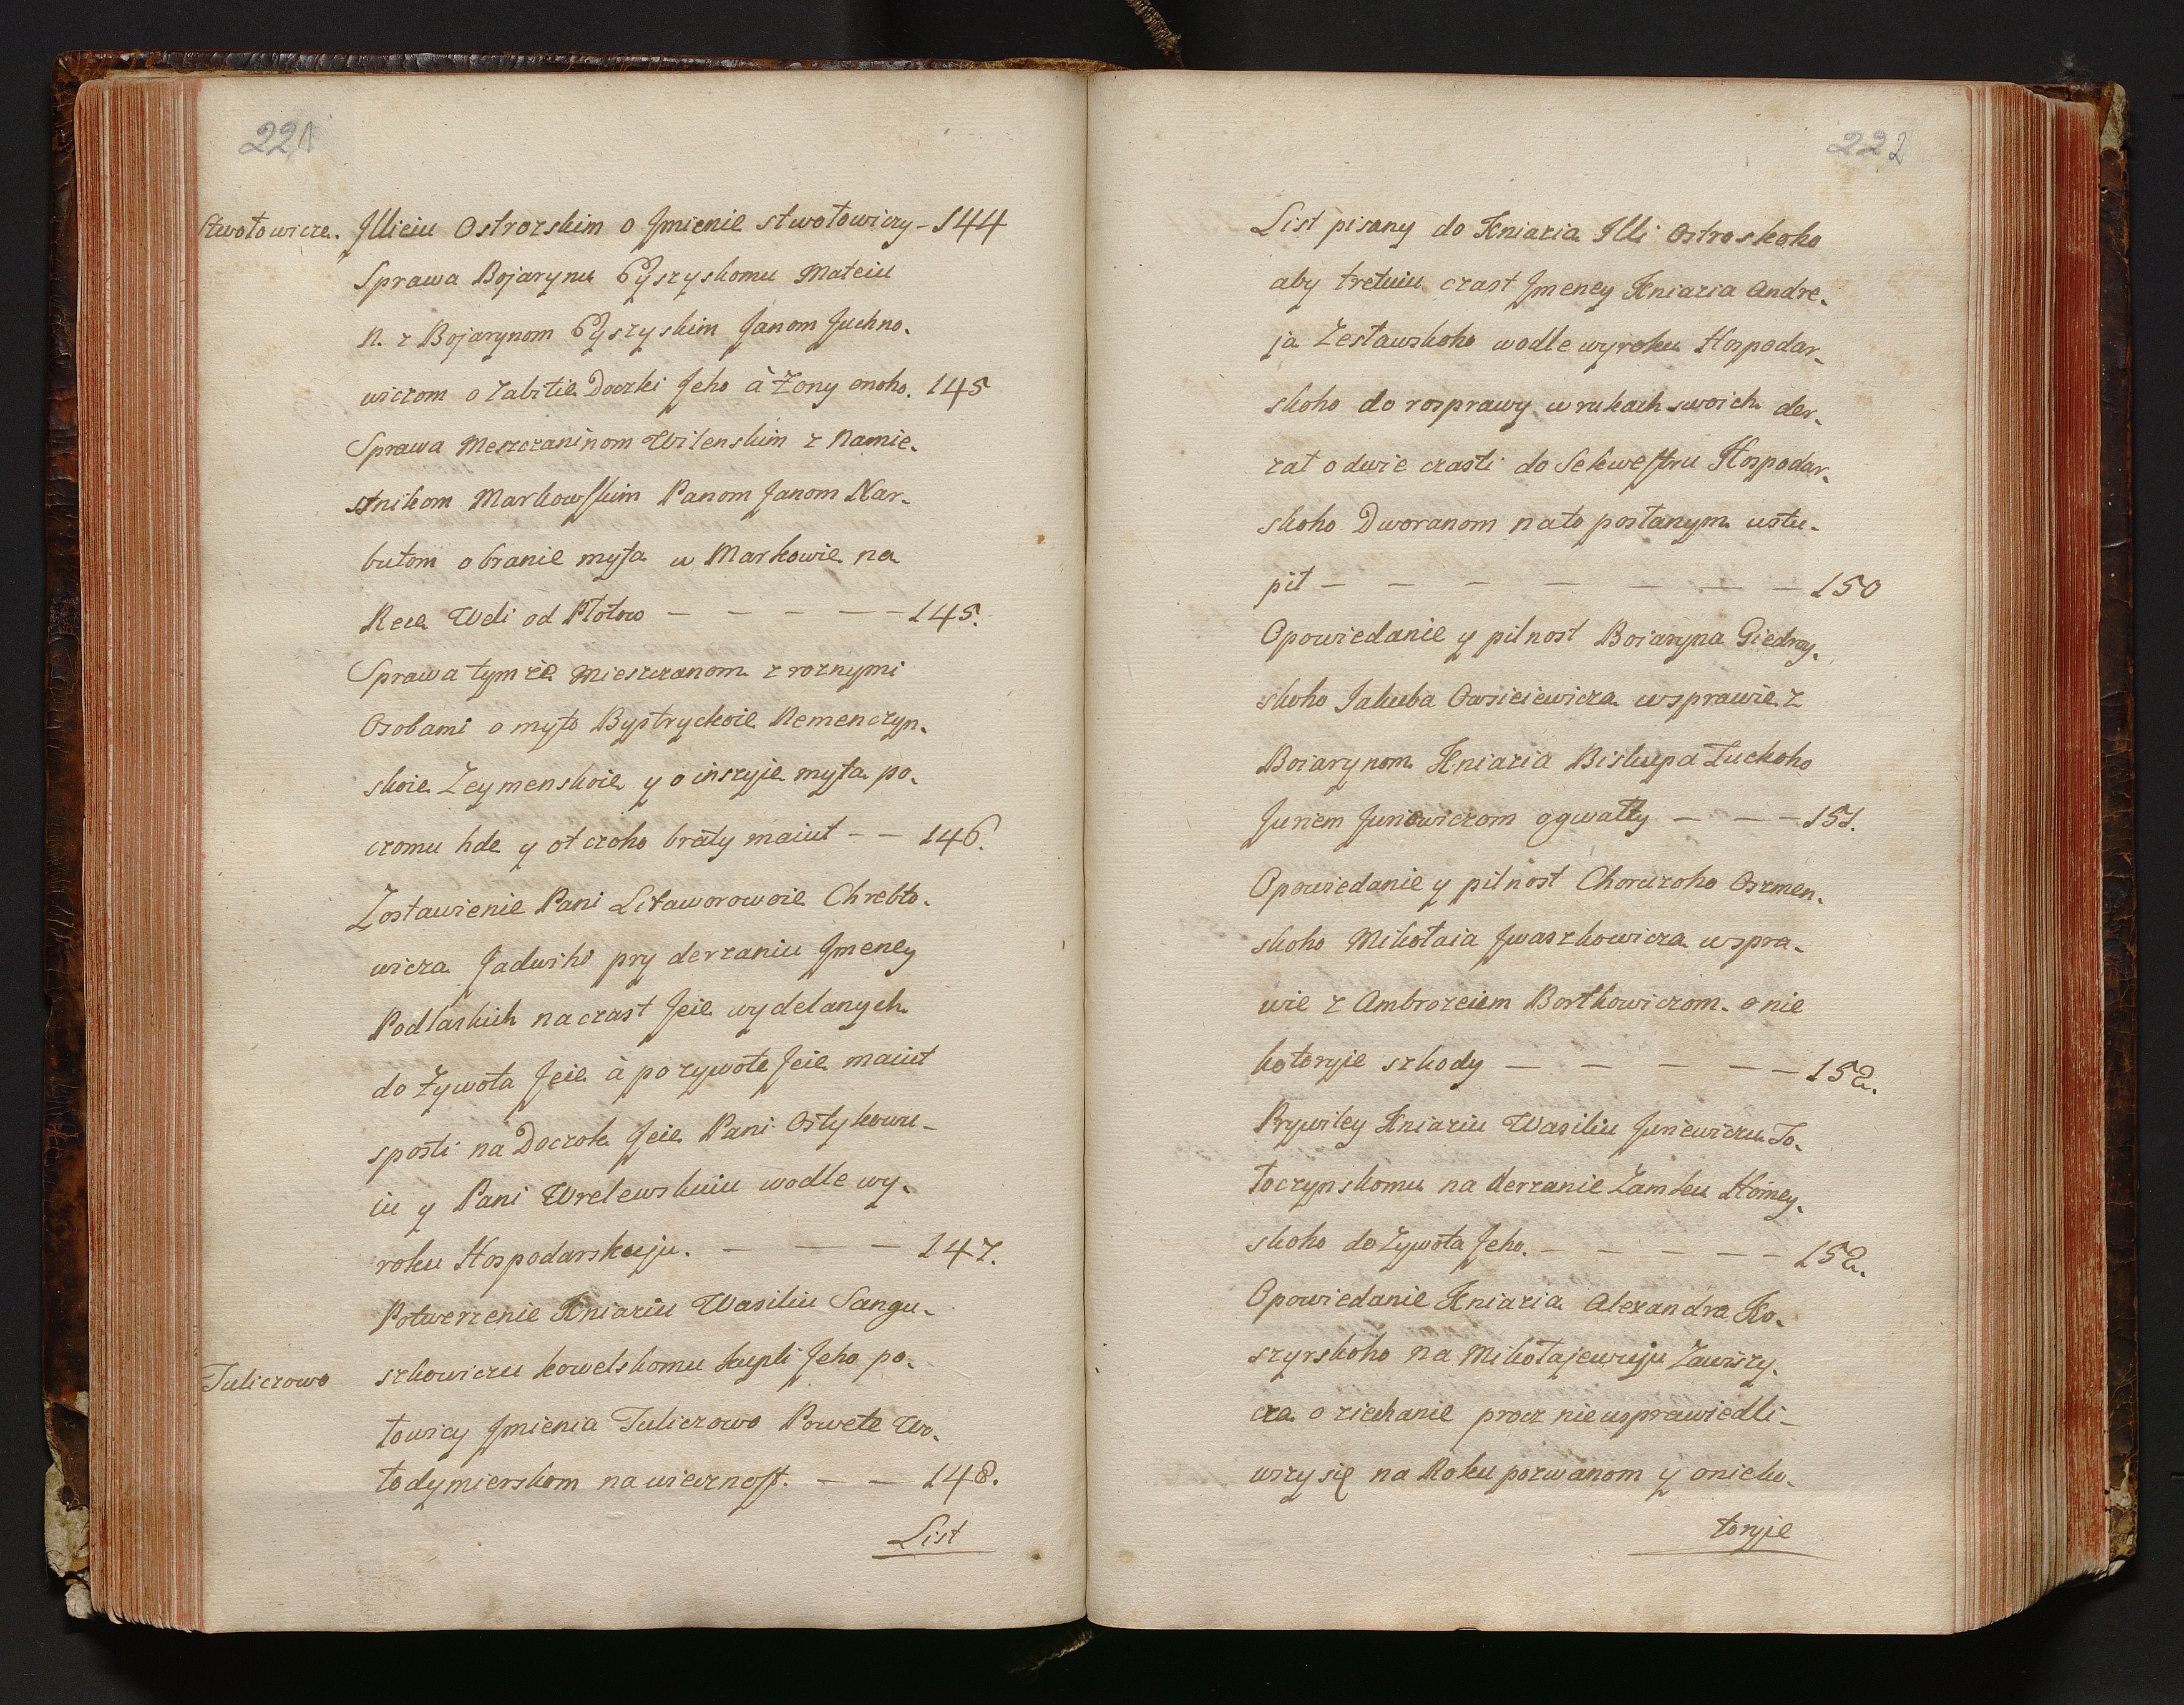 221
Stwołowicze. Illieiu Ostrozskim o Jmienie stwołowiczy - 144
Sprawa Bojarynu Byszyskomu Mateiu
N. z Bojarynom Byszyskim Janom Juchno-
wiczom o zabitie Doczki Jeho à Żony onoho. 145
Sprawa Meszczaninom Wilenskim z Namie-
stnikom Markowskim Panom Janom Nar-
butom o branie myta w Markowie na
Rece Weli od Płotow — — — — — 145.
Sprawa tym że Mieszczanom z roznymi
Osobami o myto Bystryckoie Nemenczyn-
skoie Zeymenskoie y o inszyje myta po-
czomu hde y ot czoho braty maiut - — 146.
Zostawienie Pani Litaworowoie Chrebto-
wicza Jadwiho pry derzaniu Jmeney
Podlaskich na czast Jeie wydelanych
do Żywota Jeie à po zywote Jeie maiut
sposti na Doczok Jeie Pani Ostykowu-
iu y Pani Wrelewskuiu wodle wy-
roku Hospodarskuju. — — — 147.
Potwerzenie Kniaziu Wasiliu Sangu-
Tuliczowo szkowiczu kowelskomu kupli Jeho po-
łowicy Jmienia Tuliczowo Powete Wo-
łodymierskom na wiecznost. — — 148.
List
222
List pisany do Kniazia Illi Ostroskoho
aby tretuiu czast Jmeney Kniazia Andre-
ja Zesławskoho wodle wyroku Hospodar-
skoho do rosprawy w rukach swoich der-
zał o dwie czasti do Sekwestru Hospodar-
skoho Dworanom na to posłanym ustu-
pił — — — — — — — 150
Opowiedanie y pilnost Boiaryna Giedroy-
skoho Jakuba Owsieiewicza w sprawie z
Boiarynom Kniazia Biskupa Łuckoho
Juriem Juriewiczom o gwałty — — — 151.
Opowiedanie y pilnost Choruzoho Oszmen-
skoho Mikołaia Jwaszkowicza w spra-
wie z Ambrozeiem Bortkowiczom o nie
kotoryje szkody — — — — — 152.
Prywiley Kniaziu Wasiliu Juriewiczu To-
łoczynskomu na derzanie Zamku Homey-
skoho do Żywota Jeho. — — — — — 152.
Opowiedanie Kniazia Alexandra Ko-
szyrskoho na Mikołajewuju Zawiszy-
cza o ziechanie procz nie usprawiedli-
wszy się na Roku pozwanom y o nieko-
toryje